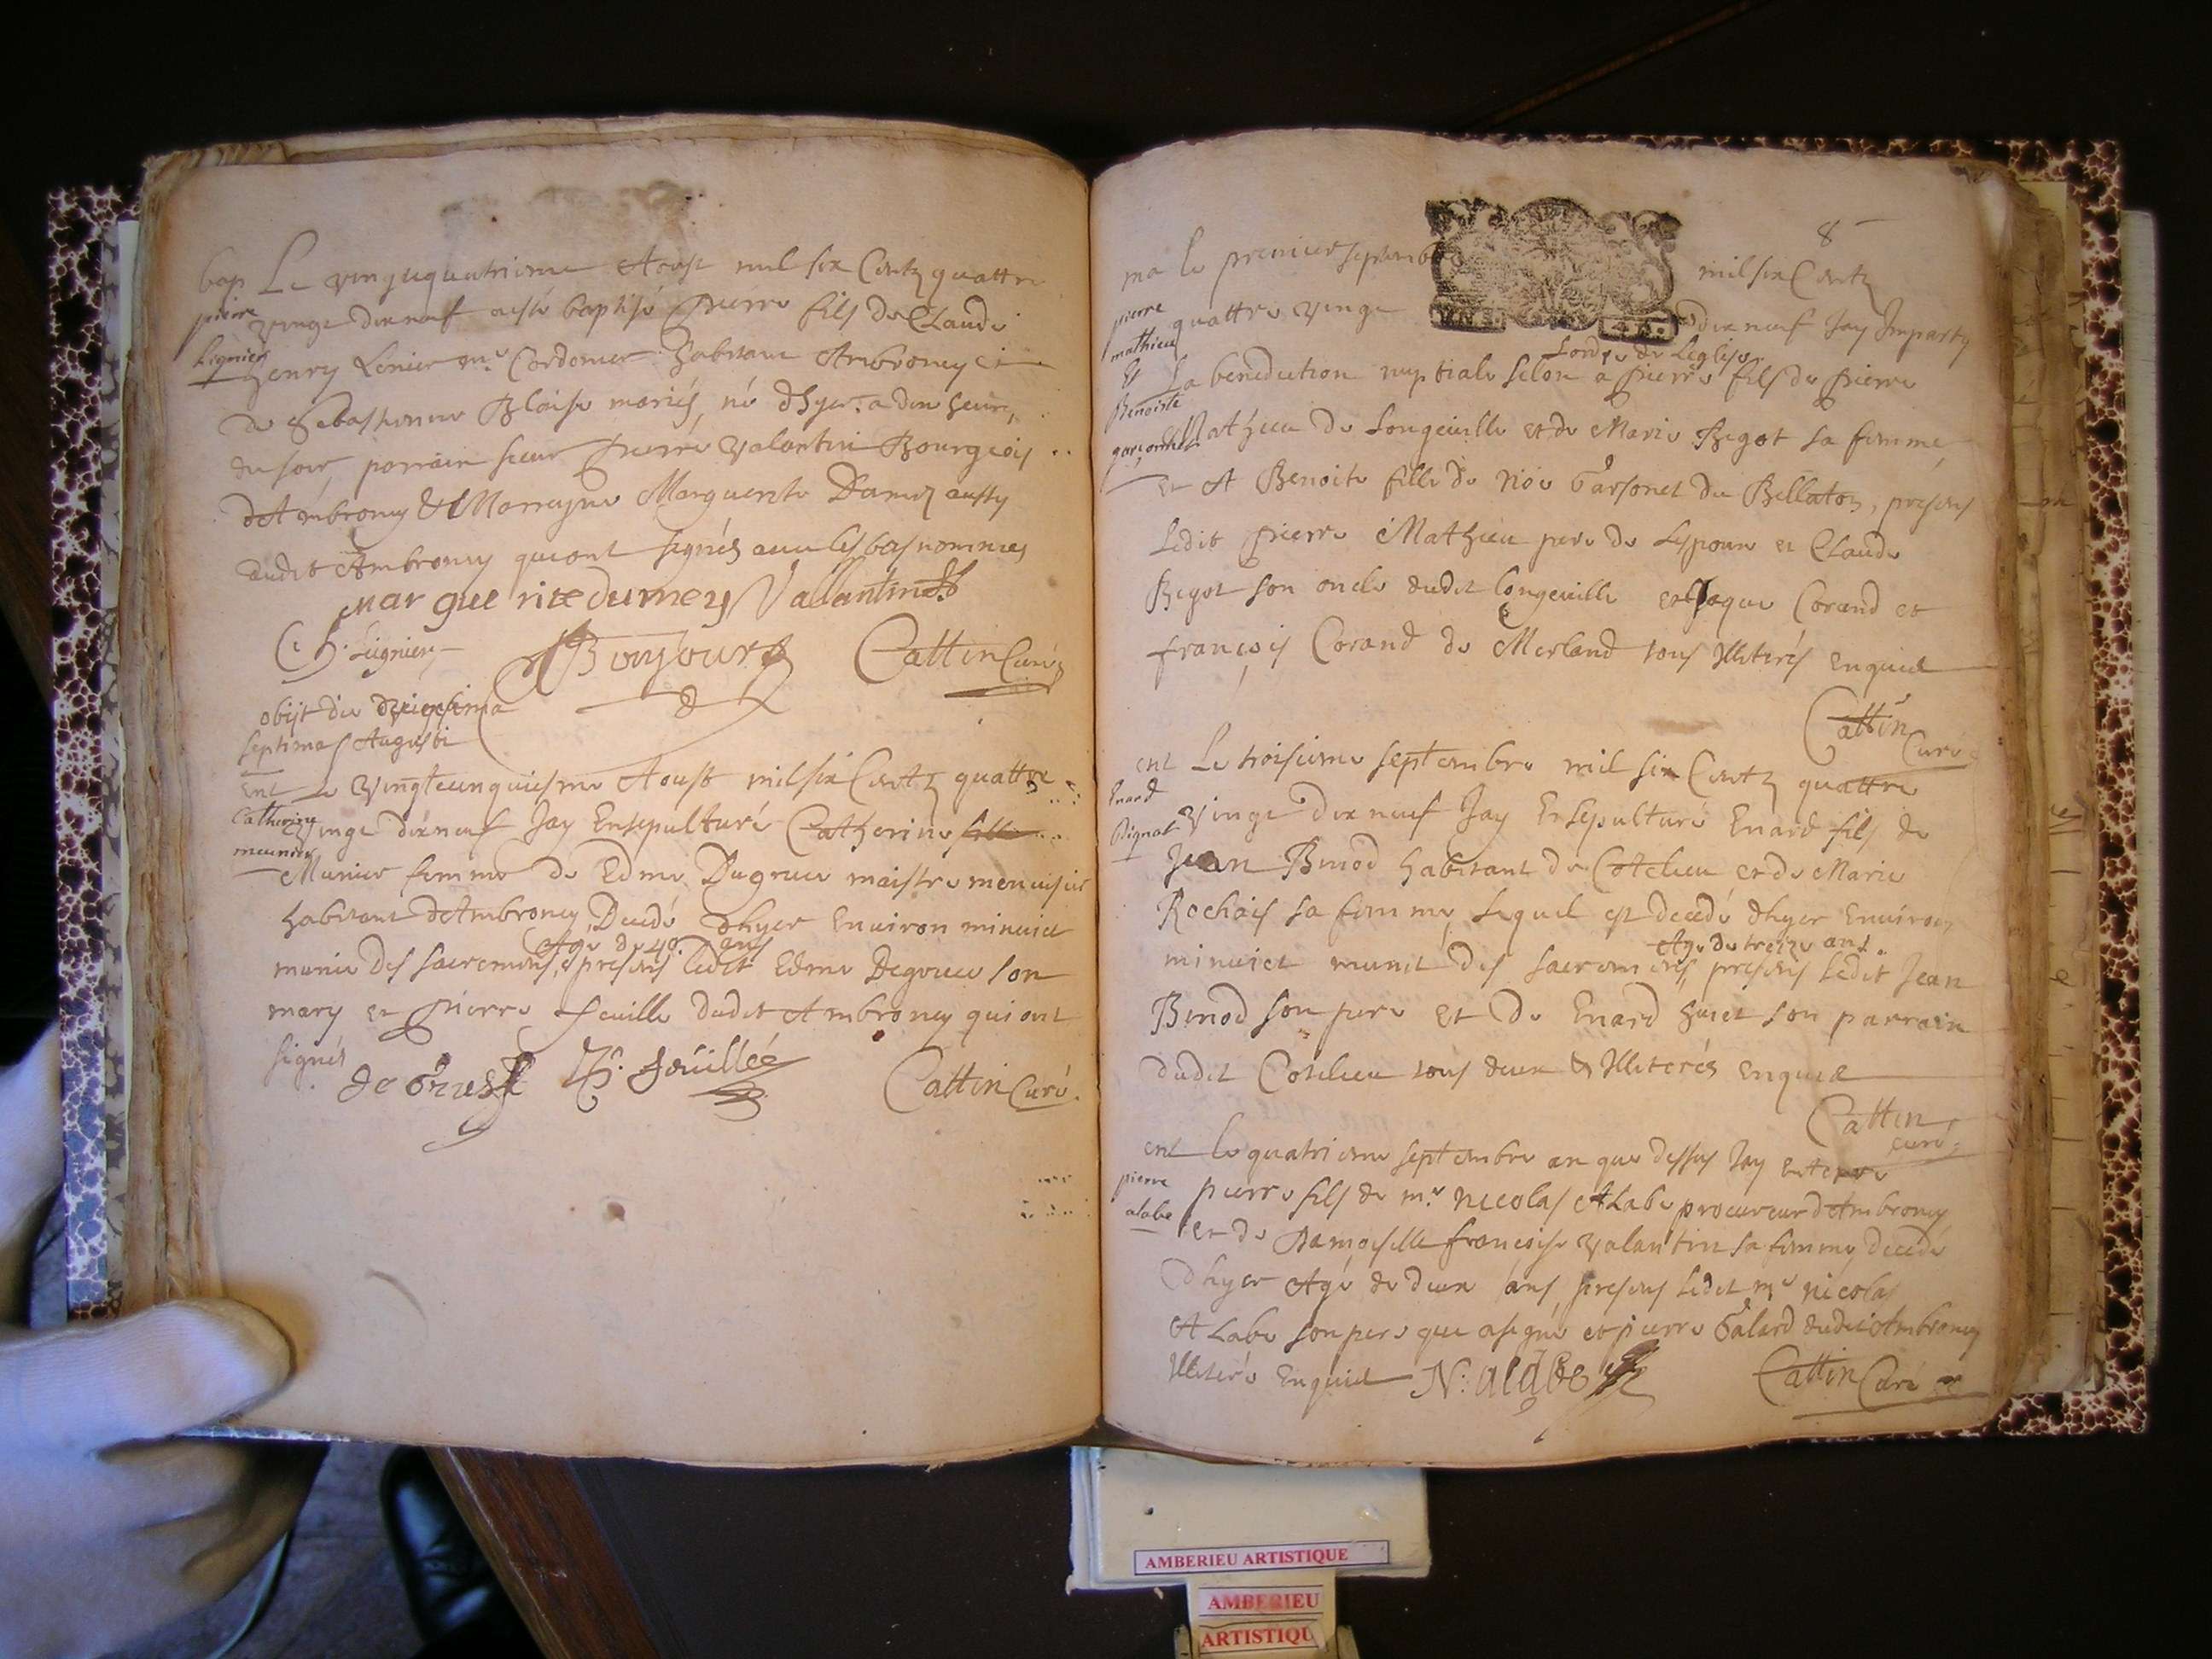 bap Le vingtquatrieme Aoust mil six Centz quattre
pierre vingt dix neuf a esté baptisé Pierre fils de Claude
Lignier henry Linier me. Cordonier habitant Ambronay et
de Sebastienne Blaise mariés, né dhyer a dix heures
du soir, parrain sieur Pierre Valantin Bourgeois
dAmbronay et Marrayne Marguerite Dumey aussy
dudit Ambronay qui ont signés avec les bas nommes
margueritedumey Vallantin
C. h. Lignier Bonjour Cattin Curé
obijt die vigesima
septima Augusti
ent Le vingtcinquiesme Aoust mil six Centz quattre
Catherine vingt dix neuf Jay Ensepulturé Catherine fille
meunier Munier femme de Edme Degrues maistre menuisier
habitant dAmbronay, Decedé dhyer Environ minuict
Agé de 40. ans
munie des sacremens, presens ledit Edme Degrues son
mary et Pierre feuille dudit Ambronay qui ont
signés
de Grus P. fouillée Cattin Curé
8
ma le premier septembre mil six Centz
pierre mathieu quattre vingt dix neuf Jay Imparty
lordre de Leglise
et La benediction nuptiale selon a Pierre fils de Pierre
Benoiste Mathieu de Longeville et de Marie Begot sa femme,
garsonnet et A Benoite fille de Noé Garsonet du Bellaton, presens
Ledit Pierre Mathieu pere de Lespoux et Claude
Begot son oncle dudit Longeville et Jaque Corand et
françois Corand de Merland tous Illiterés Enquis
Cattin
Curé
ent Le troisieme septembre mil six Centz quattre
Enard vingt dix neuf Jay Ensepulturé Enard fils de
Jean Binod habitant de Cotelieu et de Marie
Rochais sa femme, Lequel est decedé dhyer Environ
Agé de treize ans.
minuict munit des sacremens, presens Ledit Jean
Binod son pere et de Enard huict son parrain
dudit Cotelieu tous deux Illiterés Enquis
Cattin
curé
ent Le quatrieme septembre an que dessus Jay enterré
pierre pierre fils de me. Nicolas ALabe procureur dAmbronay
alabe et de Damoiselle francoise Valantin sa femme, decedé
dhyer Agé de deux ans, presens Ledit me nicolas
ALabe son pere qui a signé et pierre Galard dudit Ambronay
Illiteré Enquis N. alabe Cattin Curé
AMBERIEU ARTISTIQUE
AMBERIEU
ARTISTIQU